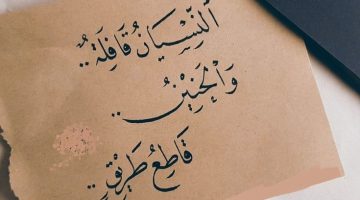 النِّسْيَانُ قَافِلَةٌ..
وَالحَنِيْنُ..
قَاطِعُ طَرِيْقٍ..